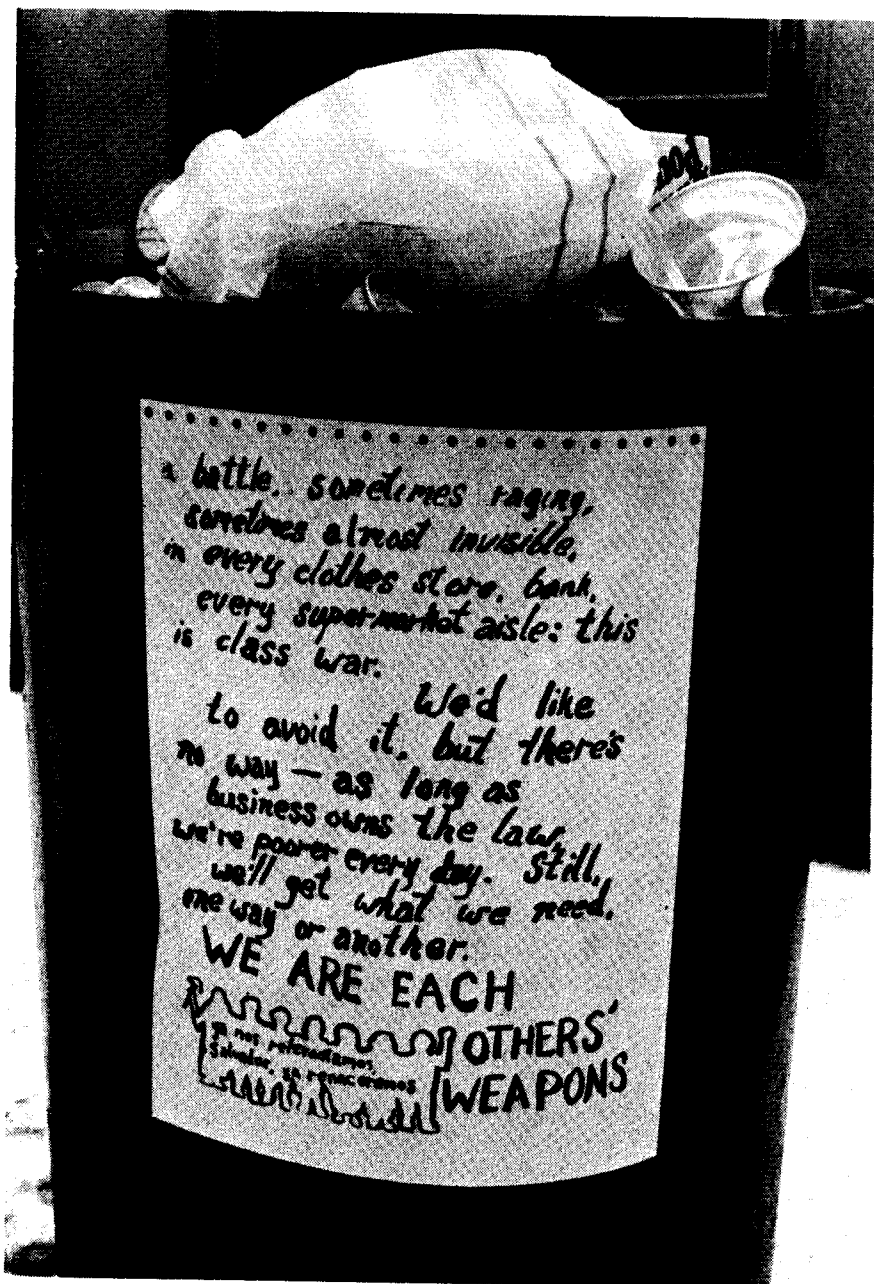 ood.
a battle, sometimes raging,
sometimes almost invisible,
in every clothes store, bank,
every supermarket aisle: this
is class war.
We'd like
to avoid it, but there's
no way — as long as
business owns the law,
we're poorer every day. Still,
we'll get what we need,
one way or another.
WE ARE EACH
OTHERS'
WEAPONS
ya nos
Salvador, ya